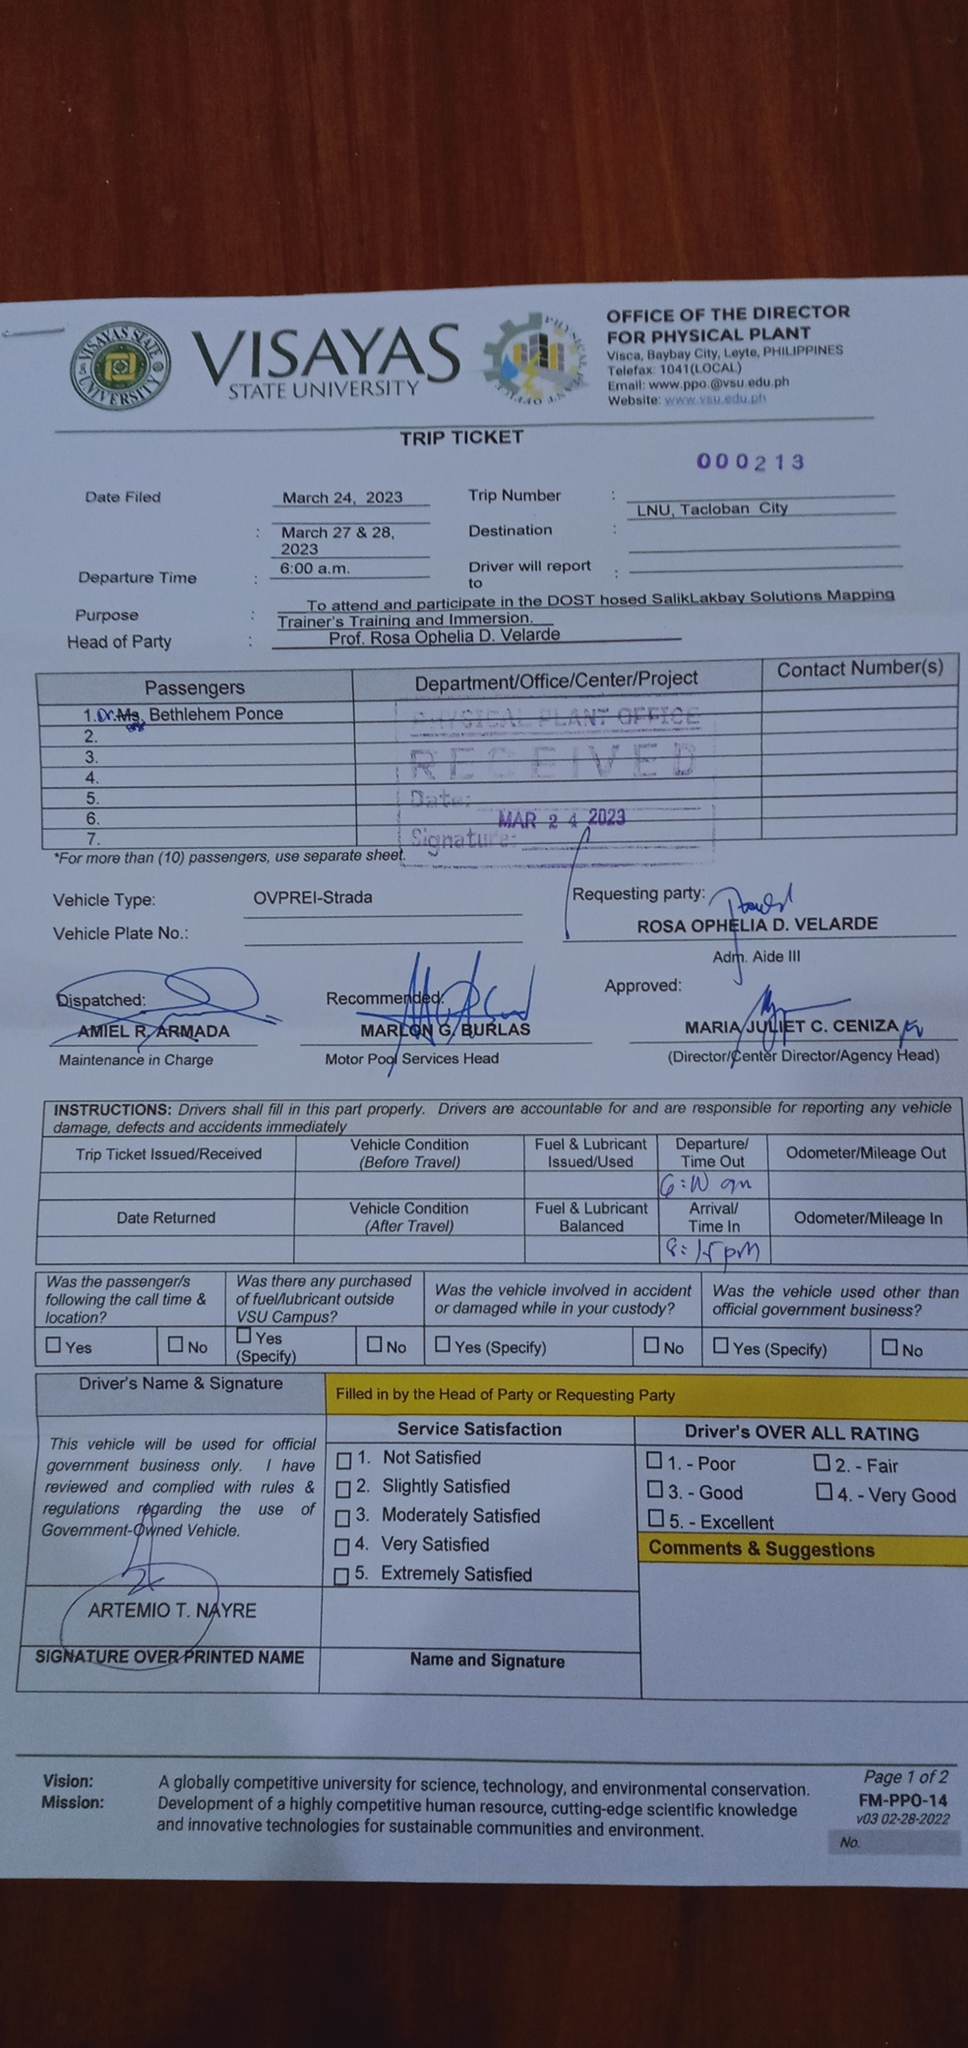 VISAYAS STATE UNIVERSITY
VISAYAS
STATE UNIVERSITY
OFFICE OF THE DIRECTOR
FOR PHYSICAL PLANT
Visca, Baybay City, Leyte, PHILIPPINES
Telefax: 1041(LOCAL)
Email: www.ppo.@vsu.edu.ph
Website: www.vsu.edu.ph
TRIP TICKET
000213
Date Filed March 24, 2023 Trip Number :
: March 27 & 28, 2023 Destination : LNU, Tacloban City
Departure Time : 6:00 a.m. Driver will report to :
Purpose : To attend and participate in the DOST hosed SalikLakbay Solutions Mapping
Trainer's Training and Immersion.
Head of Party : Prof. Rosa Ophelia D. Velarde
Passengers Department/Office/Center/Project Contact Number(s)
1. Dr. Ms. Bethlehem Ponce
2.
3.
4.
5.
6.
7.
PHYSICAL PLANT OFFICE
RECEIVED
Date: MAR 24 2023
Signature:
*For more than (10) passengers, use separate sheet.
Vehicle Type: OVPREI-Strada Requesting party:
Vehicle Plate No.: ROSA OPHELIA D. VELARDE
Adm. Aide III
Dispatched: Recommended: Approved:
AMIEL R. ARMADA MARLON G. BURLAS MARIA JULIET C. CENIZA
Maintenance in Charge Motor Pool Services Head (Director/Center Director/Agency Head)
INSTRUCTIONS: Drivers shall fill in this part properly. Drivers are accountable for and are responsible for reporting any vehicle
damage, defects and accidents immediately
Trip Ticket Issued/Received Vehicle Condition (Before Travel) Fuel & Lubricant Issued/Used Departure/ Time Out Odometer/Mileage Out
Date Returned Vehicle Condition (After Travel) Fuel & Lubricant Balanced Arrival/ Time In Odometer/Mileage In
8:15pm
Was the passenger/s following the call time & location? Was there any purchased of fuel/lubricant outside VSU Campus? Was the vehicle involved in accident or damaged while in your custody? Was the vehicle used other than official government business?
Yes No Yes (Specify) No Yes (Specify) No Yes (Specify) No
Driver's Name & Signature Filled in by the Head of Party or Requesting Party
Service Satisfaction Driver's OVER ALL RATING
This vehicle will be used for official
government business only. I have
reviewed and complied with rules &
regulations regarding the use of
Government-Owned Vehicle.
1. Not Satisfied
2. Slightly Satisfied
3. Moderately Satisfied
4. Very Satisfied
5. Extremely Satisfied
1. - Poor 2. - Fair
3. - Good 4. - Very Good
5. - Excellent
Comments & Suggestions
ARTEMIO T. NAYRE
SIGNATURE OVER PRINTED NAME Name and Signature
Vision: A globally competitive university for science, technology, and environmental conservation.
Mission: Development of a highly competitive human resource, cutting-edge scientific knowledge
and innovative technologies for sustainable communities and environment.
Page 1 of 2
FM-PPO-14
v03 02-28-2022
No.